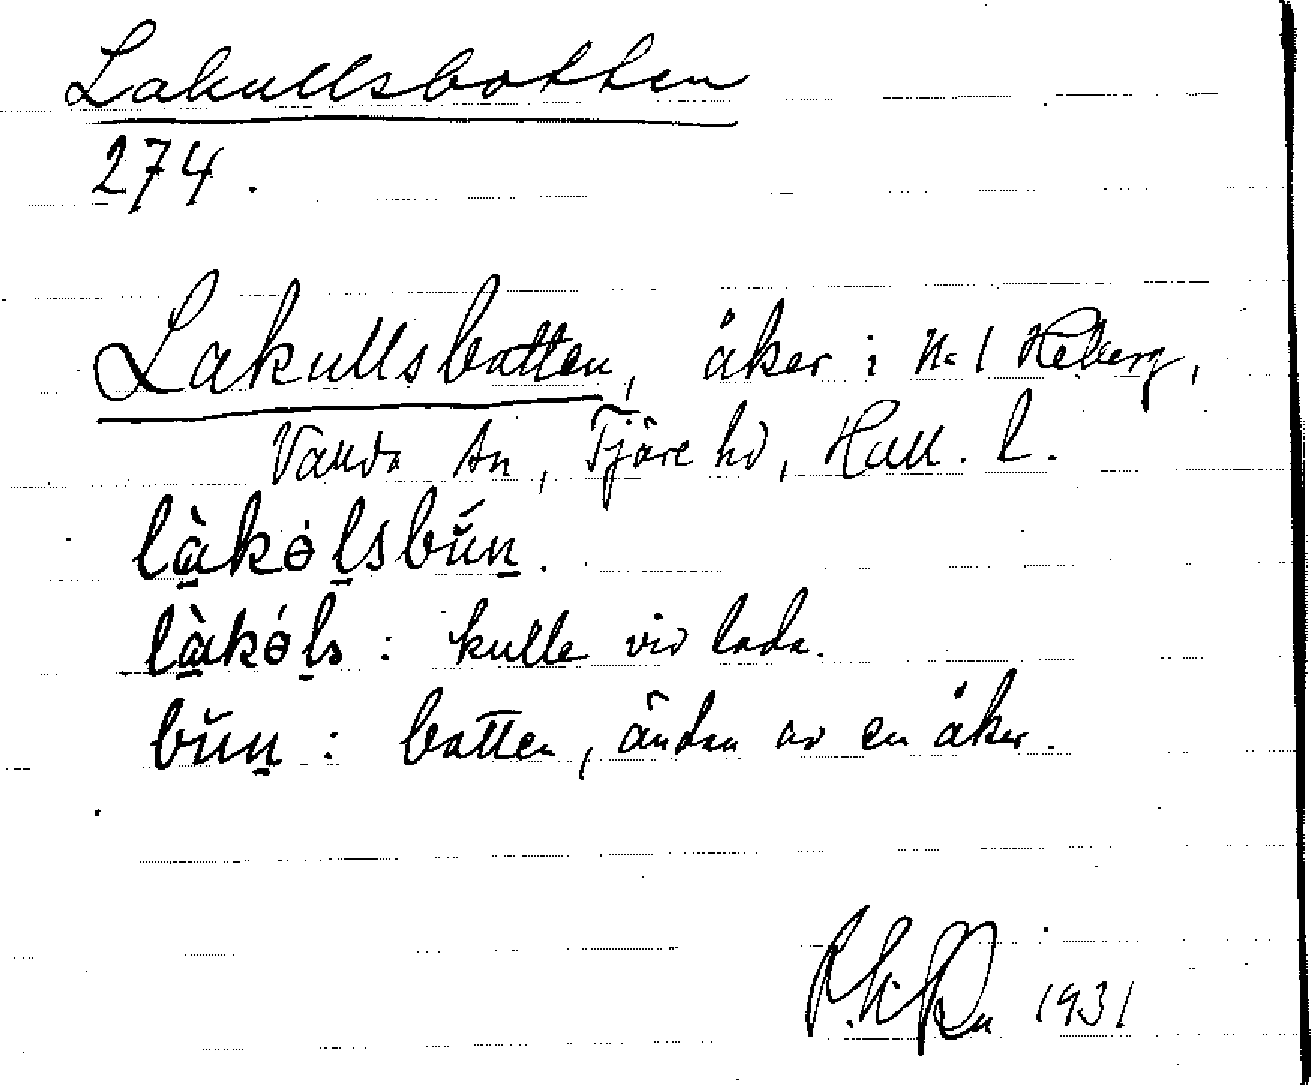 Lakullsbotten
274.
Lakullsbotten, åker i N:1 Heberg,
Vallda sn, Fjäre hd, Hall. l.
là̱kɵḻsbŭ́ṉ.
là̱kɵ́ḻs: kulle vid lada.
bŭṉ: botten, ändan av en åker.
1931